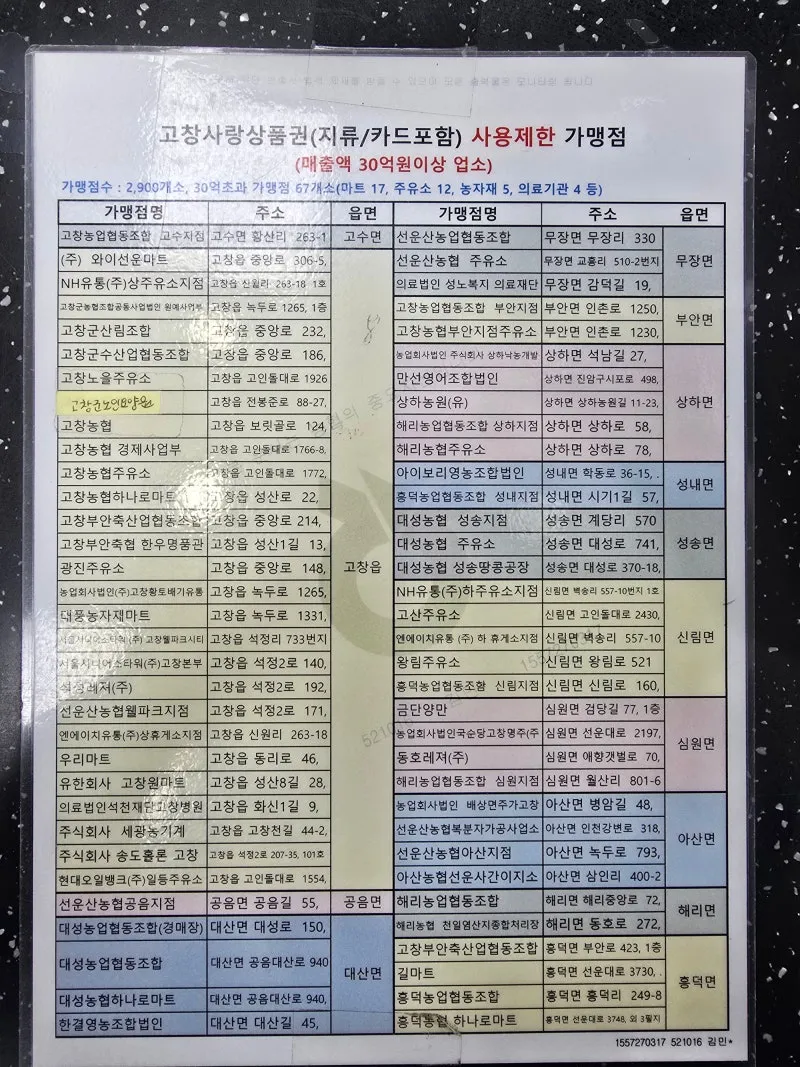 고창사랑상품권(지류/카드포함) 사용제한 가맹점
(매출액 30억원이상 업소)
가맹점수 : 2,908개소, 30억초과 가맹점 67개소(마트 17, 주유소 12, 농자재 5, 의료기관 4 등)
가맹점명 주소 읍면
고창농업협동조합 고수지점 고수면 황산리 263-1 고수면
(주) 와이선운마트 고창읍 중앙로 306-5,
NH유통(주)상주유소지점 고창읍 신월리 263-18 1호
고창군농협조합공동사업법인 원예사업부 고창읍 녹두로 1265, 1층
고창군산림조합 고창읍 중앙로 232,
고창군수산업협동조합 고창읍 중앙로 186,
고창노을주유소 고창읍 고인돌대로 1926
고창군노인요양원 고창읍 전봉준로 88-27,
고창농협 고창읍 보릿골로 124,
고창농협 경제사업부 고창읍 고인돌대로 1766-8,
고창농협주유소 고창읍 고인돌대로 1772,
고창농협하나로마트 고창읍 성산로 22,
고창부안축산업협동조합 고창읍 중앙로 214,
고창부안축협 한우명품관 고창읍 성산1길 13,
고창읍
광진주유소 고창읍 중앙로 148,
농업회사법인(주)고창황토배기유통 고창읍 녹두로 1265,
대풍농자제마트 고창읍 녹두로 1331,
서울시니어스타워(주) 고창웰파크시티 고창읍 석정리 733번지
서울시니어스타워(주)고창본부 고창읍 석정2로 140,
석정레져(주) 고창읍 석정2로 192,
선운산농협웰파크지점 고창읍 석정2로 171,
엔에이치유통(주)상휴게소지점 고창읍 신월리 263-18
우리마트 고창읍 동리로 46,
유한회사 고창원마트 고창읍 성산8길 28,
의료법인석천재단고창병원 고창읍 화신1길 9,
주식회사 세광농기계 고창읍 고창천길 44-2,
주식회사 송도홀론 고창 고창읍 석정2로 207-35, 101호
현대오일뱅크(주)일등주유소 고창읍 고인돌대로 1554,
선운산농협공음지점 공음면 공음길 55, 공음면
대성농업협동조합(경매장) 대산면 대성로 150,
대성농업협동조합 대산면 공음대산로 940
대산면
대성농협하나로마트 대산면 공음대산로 940,
한결영농조합법인 대산면 대산길 45,
가맹점명 주소 읍면
선운산농업협동조합 무장면 무장리 330
선운산농협 주유소 무장면 교흥리 510-2번지 무장면
의료법인 성노복지 의료재단 무장면 감덕길 19,
고창농업협동조합 부안지점 부안면 인촌로 1250,
부안면
고창농협부안지점주유소 부안면 인촌로 1230,
농업회사법인 주식회사 상하낙농개발 상하면 석남길 27,
만선영어조합법인 상하면 진암구시포로 498,
상하농원(유) 상하면 상하농원길 11-23, 상하면
해리농업협동조합 상하지점 상하면 상하로 58,
해리농협주유소 상하면 상하로 78,
아이보리영농조합법인 성내면 학동로 36-15, .
성내면
흥덕농업협동조합 성내지점 성내면 시기1길 57,
대성농협 성송지점 성송면 계당리 570
대성농협 주유소 성송면 대성로 741, 성송면
대성농협 성송땅콩공장 성송면 대성로 370-18,
NH유통(주)하주유소지점 신림면 벽송리 557-10번지 1호
고산주유소 신림면 고인돌대로 2430,
엔에이치유통 (주) 하 휴게소지점 신림면 벽송리 557-10 신림면
왕림주유소 신림면 왕림로 521
흥덕농업협동조합 신림지점 신림면 신림로 160,
금단양만 심원면 검당길 77, 1층
농업회사법인국순당고창명주(주 심원면 선운대로 2197,
심원면
동호레져(주) 심원면 애향갯벌로 70,
해리농업협동조합 심원지점 심원면 월산리 801-6
농업회사법인 배상면주가고창 아산면 병암길 48,
선운산농협복분자가공사업소 아산면 인천강변로 318,
아산면
선운산농협아산지점 아산면 녹두로 793,
아산농협선운사간이지소 아산면 삼인리 400-2
해리농업협동조합 해리면 해리중앙로 72,
해리면
해리농협 천일염산지종합처리장 해리면 동호로 272,
고창부안축산업협동조합 흥덕면 부안로 423, 1층
길마트 흥덕면 선운대로 3730, .
흥덕면
흥덕농업협동조합 흥덕면 흥덕리 249-8
흥덕농협 하나로마트 흥덕면 선운대로 3748, 외 3필지
1557270317 521016 김민*